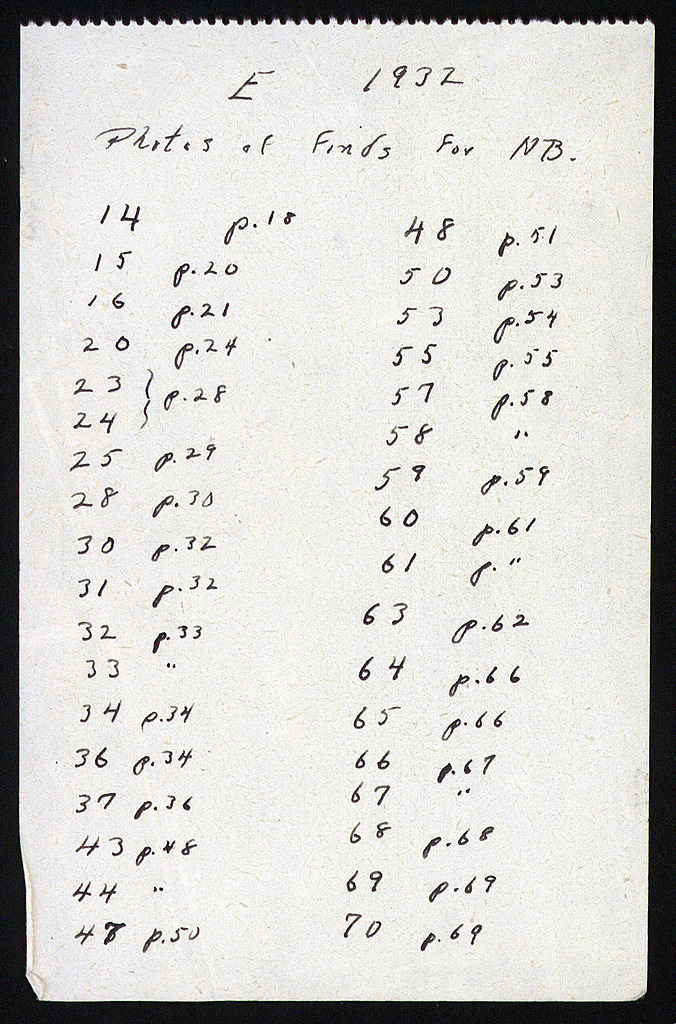 E 1932
Photos of Finds For NB.
14 p.18
15 p.20
16 p.21
20 p.24
23 } p.28
24 }
25 p.29
28 p.30
30 p.32
31 p.32
32 p.33
33 "
34 p.34
36 p.34
37 p.36
43 p.48
44 "
47 p.50
48 p.51
50 p.53
53 p.54
55 p.55
57 p.58
58 "
59 p.59
60 p.61
61 p. "
63 p.62
64 p.66
65 p.66
66 p.67
67 "
68 p.68
69 p.69
70 p.69